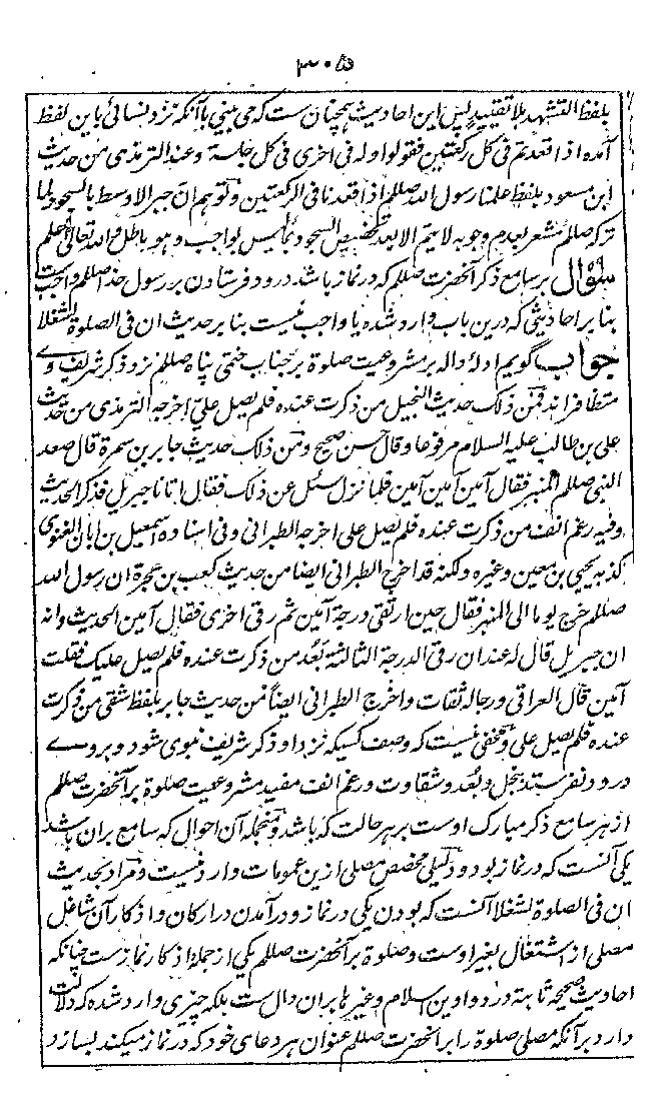 ۳۰۵
بلفظ التشهد بلا تقیید پس این احادیث همچنان ست که می بینی با آنکه نزد نسائی باین لفظ
آمده اذا قعدتم فی کل رکعتین فقولوا و له فی اخری فی کل جلسة و عند الترمذی من حدیث
ابن مسعود بلفظ علمنا رسول الله صللم اذا قعدنا فی الرکعتین و توهم ان جبر الاوسط بالسجود لما
ترکه صللم مشعر بعدم وجوبه لا یتم الا بعد تخصیص السجود بما لیس بواجب و هو باطل و الله تعالی اعلم
سؤال بر سامع ذکر آنحضرت صللم که در نماز باشد درود فرستادن بر رسول خدا صللم واجب ست
بنا بر احادیثی که درین باب وارد شده یا واجب نیست بنا بر حدیث ان فی الصلوة لشغلا
جواب گویم ادلۀ داله بر مشروعیت صلوة بر جناب ختمی پناه صللم نزد ذکر شریف وے
متظافر اند فمن ذلک حدیث البخیل من ذکرت عنده فلم یصل علیّ اخرجه الترمذی من حدیث
علی بن طالب علیه السلام مرفوعا و قال حسن صحیح و من ذلک حدیث جابر بن سمرة قال صعد
النبی صللم المنبر فقال آمین آمین آمین فلما نزل سئل عن ذلک فقال اتانا جبریل فذکر الحدیث
و فیه رغم انف من ذکرت عنده فلم یصل علی اخرجه الطبرانی و فی اسناده اسمعیل بن ابان الغنوی
کذبه یحیی بن معین و غیره و لکنه قد اخرج الطبرانی ایضا من حدیث کعب بن عجرة ان رسول الله
صللم خرج یوما الی المنبر فقال حین ارتقی درجة آمین ثم رقی اخری فقال آمین الحدیث و انه
ان جبریل قال له عند ان رقی الدرجة الثالثة بَعُد من ذکرت عنده فلم یصل علیک فقلت
آمین قال العراقی و رجاله ثقات و اخرج الطبرانی ایضاً من حدیث جابر بلفظ شقی من ذکرت
عنده فلم یصل علی و مخفی نیست که وصف کسیکه نزد او ذکر شریف نبوی شود و بروے
درود نفرستد ببخل و بُعد و شقاوت و رغم انف مفید مشروعیت صلوة بر آنحضرت صللم
از هر سامع ذکر مبارک اوست بر هر حالت که باشد و منجمله آن احوال که سامع بران باشد
یکی آنست که در نماز بود و دلیلی مخصص مصلی ازین عمومات وارد نیست و مراد بحدیث
ان فی الصلوة لشغلا آنست که بودن یکی در نماز و درآمدن در ارکان و اذکار آن شاغل
مصلی از اشتغال بغیر اوست و صلوة بر آنحضرت صللم یکی از جمله اذکار نماز ست چنانکه
احادیث صحیحه ثابته در دواوین اسلام و غیرها بران دال ست بلکه چیزی وارد شده که دلالت
دارد بر آنکه مصلی صلوة را بر آنحضرت صللم عنوان هر دعای خود که در نماز میکند بسازد